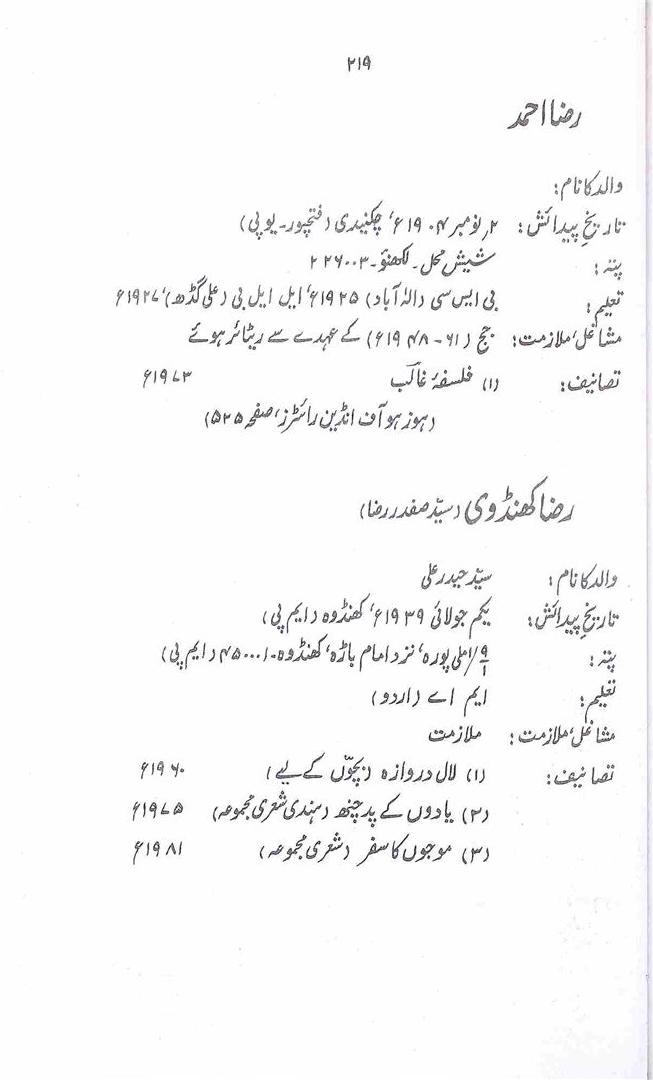 ۲۱۹
رضا احمد
والد کا نام:
تاریخِ پیدائش: ۲؍ نومبر ۱۹۰۴ء، چکنیدی (فتحپور۔ یو پی)
پتہ: شیش محل۔ لکھنؤ۔ ۲۲۶۰۰۳
تعلیم: بی ایس سی (الٰہ آباد) ۱۹۲۵ء، ایل ایل بی (علی گڈھ)، ۱۹۲۷ء
مشاغل؍ملازمت: جج (۶۱ - ۱۹۴۸ء) کے عہدے سے ریٹائر ہوئے
تصانیف: (۱) فلسفۂ غالب ۱۹۷۳ء
(ہوز ہو آف انڈین رائٹرز، صفحہ ۵۲۵)
رضا کھنڈوی (سیّد صفدر رضا)
والد کا نام: سیّد حیدر علی
تاریخِ پیدائش: یکم جولائی ۱۹۳۹ء، کھنڈوہ (ایم پی)
پتہ: ۹/۱ املی پورہ، نزد امام باڑہ، کھنڈوہ۔ ۴۵۰۰۰۱ (ایم پی)
تعلیم: ایم اے (اردو)
مشاغل؍ملازمت: ملازمت
تصانیف: (۱) لال دروازہ (بچّوں کے لیے) ۱۹۶۰ء
(۲) یادوں کے پد چنھ (ہندی شعری مجموعہ) ۱۹۷۵ء
(۳) موجوں کا سفر (شعری مجموعہ) ۱۹۸۱ء